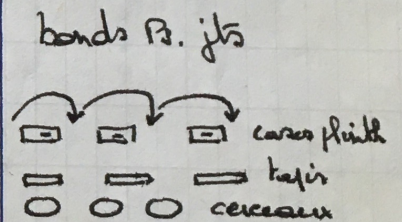 bonds P. jts
caisses plinth
tapis
cerceaux